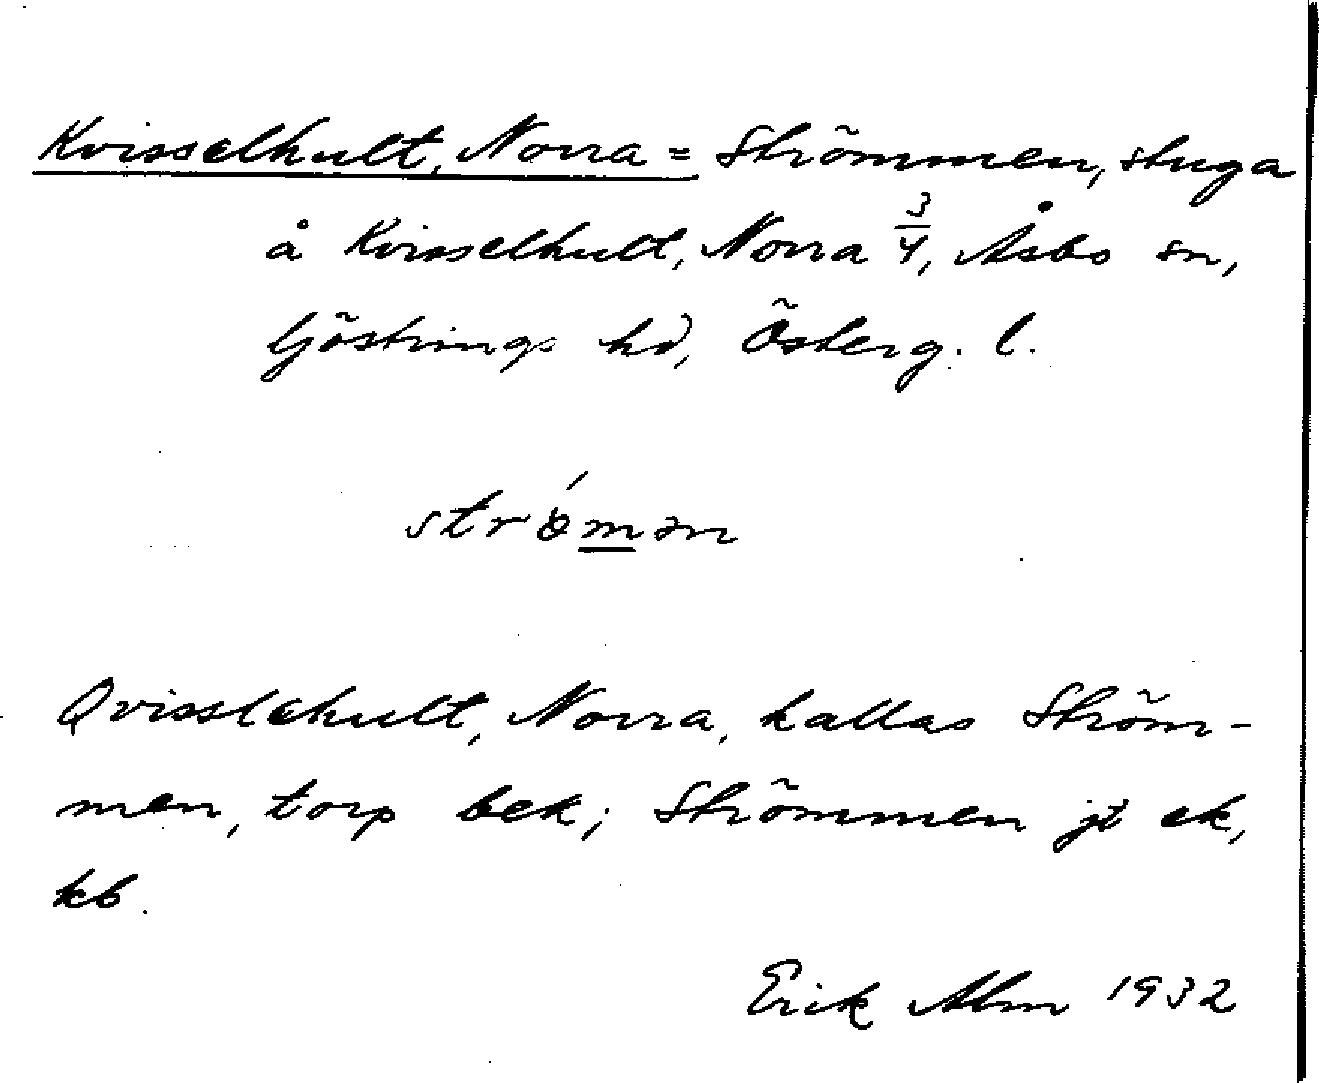 Kvisselhult, Norra = Strömmen, stuga
å Kvisselhult, Norra 3/4, Åsbo sn,
Göstrings hd, Österg. l.
strö́mən
Qvisslehult, Norra, kallas Ström-
men, torp bek; Strömmen jt ek,
kb.
Erik Alm 1932